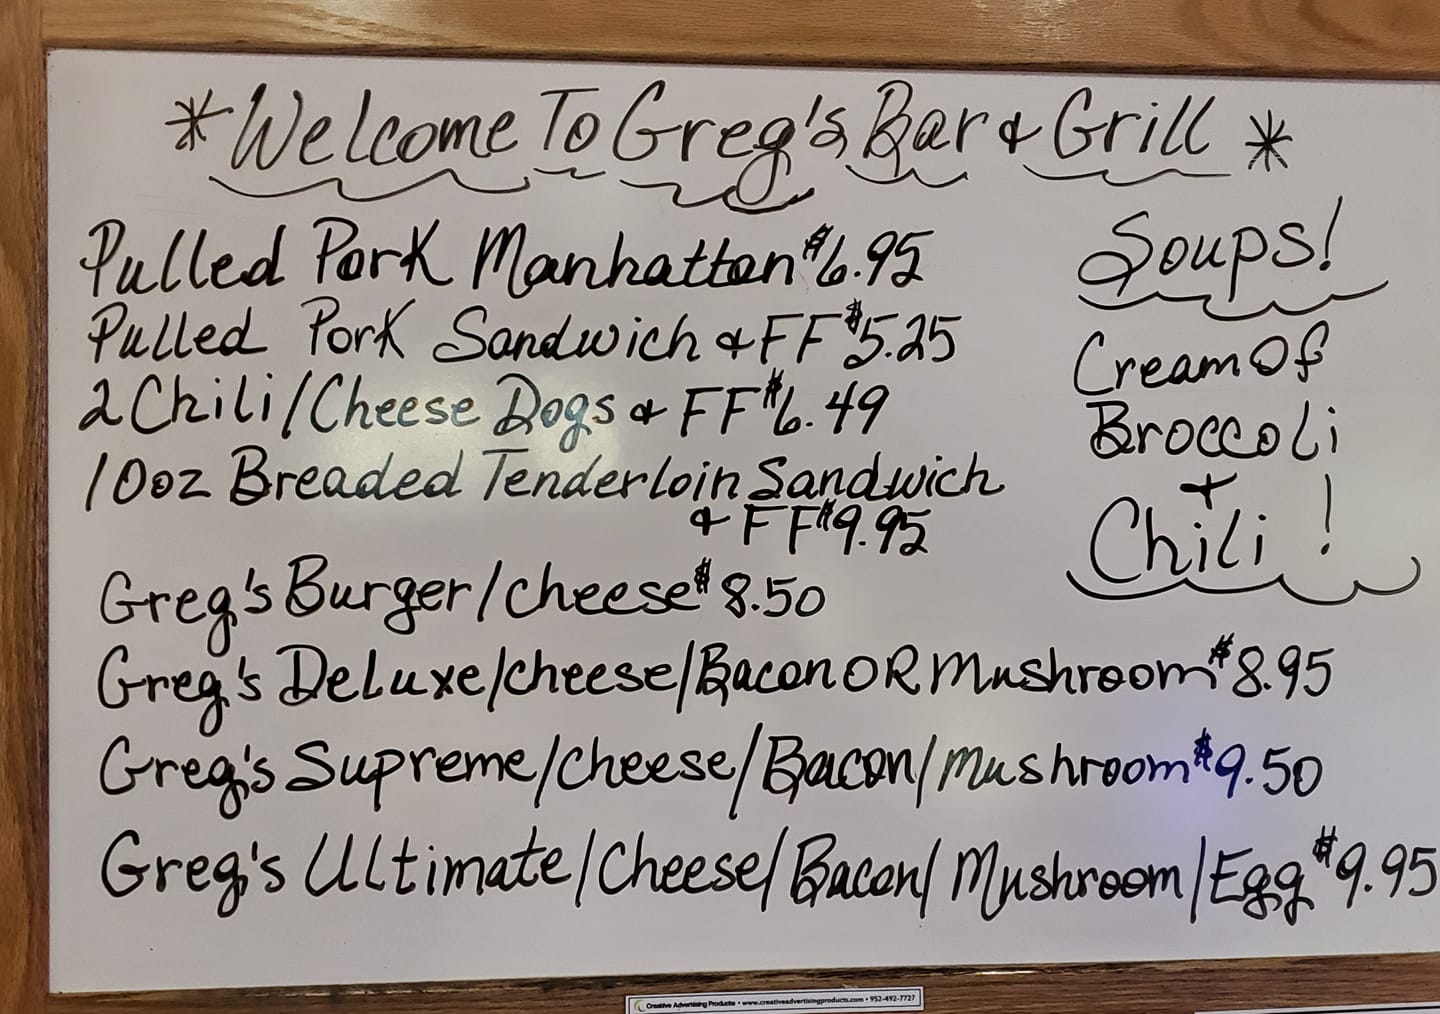 *Welcome To Greg's Bar & Grill*
Pulled Pork Manhattan $6.95
Pulled Pork Sandwich & FF $5.25
2 Chili/Cheese Dogs & FF $6.49
10oz Breaded Tenderloin Sandwich
& FF $9.95
Greg's Burger/cheese $8.50
Greg's DeLuxe/cheese/Bacon OR Mushroom $8.95
Greg's Supreme/cheese/Bacon/mushroom $9.50
Greg's Ultimate/Cheese/Bacon/Mushroom/Egg $9.95
Soups!
Cream Of
Broccoli
+
Chili!
Creative Advertising Products • www.creativeadvertisingproducts.com • 952-492-7727